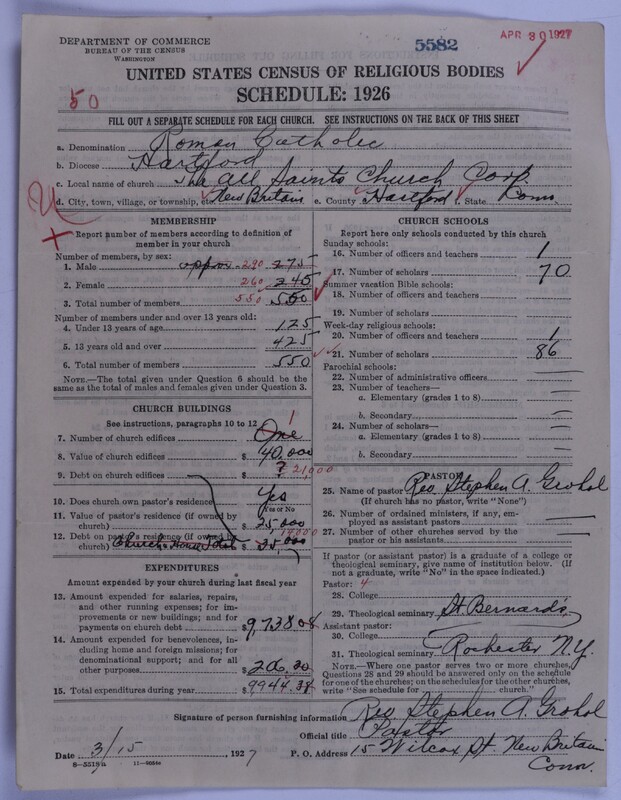 DEPARTMENT OF COMMERCE
BUREAU OF THE CENSUS
WASHINGTON
5582
APR 30 1927
UNITED STATES CENSUS OF RELIGIOUS BODIES
SCHEDULE: 1926
50
FILL OUT A SEPARATE SCHEDULE FOR EACH CHURCH. SEE INSTRUCTIONS ON THE BACK OF THIS SHEET
a. Denomination Roman Catholic
b. Diocese Hartford
c. Local name of church The All Saints Church Corp.
d. City, town, village, or township, etc. New Britain e. County Hartford f. State Conn.
MEMBERSHIP
Report number of members according to definition of member in your church
Number of members, by sex:
1. Male approx 290 275
2. Female 260 245
3. Total number of members 550 550
Number of members under and over 13 years old:
4. Under 13 years of age 125
5. 13 years old and over 425
6. Total number of members 550
NOTE.—The total given under Question 6 should be the same as the total of males and females given under Question 3.
CHURCH BUILDINGS
See instructions, paragraphs 10 to 12 1
7. Number of church edifices One
8. Value of church edifices $ 40,000
9. Debt on church edifices $ ? 21,000
10. Does church own pastor's residence Yes
Yes or No
11. Value of pastor's residence (if owned by church) $ 25,000
12. Debt on pastor's residence (if owned by church) Church & House Total $ 35,000 14,000
EXPENDITURES
Amount expended by your church during last fiscal year
13. Amount expended for salaries, repairs, and other running expenses; for improvements or new buildings; and for payments on church debt $ 9,738.08
14. Amount expended for benevolences, including home and foreign missions; for denominational support; and for all other purposes $ 206.30
15. Total expenditures during year $ 9944.38
CHURCH SCHOOLS
Report here only schools conducted by this church
Sunday schools:
16. Number of officers and teachers 1
17. Number of scholars 70
Summer vacation Bible schools:
18. Number of officers and teachers
19. Number of scholars
Week-day religious schools:
20. Number of officers and teachers 1
21. Number of scholars 86
Parochial schools:
22. Number of administrative officers
23. Number of teachers—
a. Elementary (grades 1 to 8)
b. Secondary
24. Number of scholars—
a. Elementary (grades 1 to 8)
b. Secondary
PASTOR
25. Name of pastor Rev. Stephen A. Grohol
(If church has no pastor, write "None")
26. Number of ordained ministers, if any, employed as assistant pastors
27. Number of other churches served by the pastor or his assistants
If pastor (or assistant pastor) is a graduate of a college or theological seminary, give name of institution below. (If not a graduate, write "No" in the space indicated.)
Pastor: 4
28. College
29. Theological seminary St. Bernard's
Assistant pastor:
30. College
31. Theological seminary Rochester N.Y.
NOTE.—Where one pastor serves two or more churches, Questions 28 and 29 should be answered only on the schedule for one of the churches; on the schedules for the other churches, write "See schedule for church."
Signature of person furnishing information Rev Stephen A. Grohol
Official title Pastor
Date 3/15, 1927 P. O. Address 15 Wilcox St. New Britain
Conn.
8—5518a 11—9068